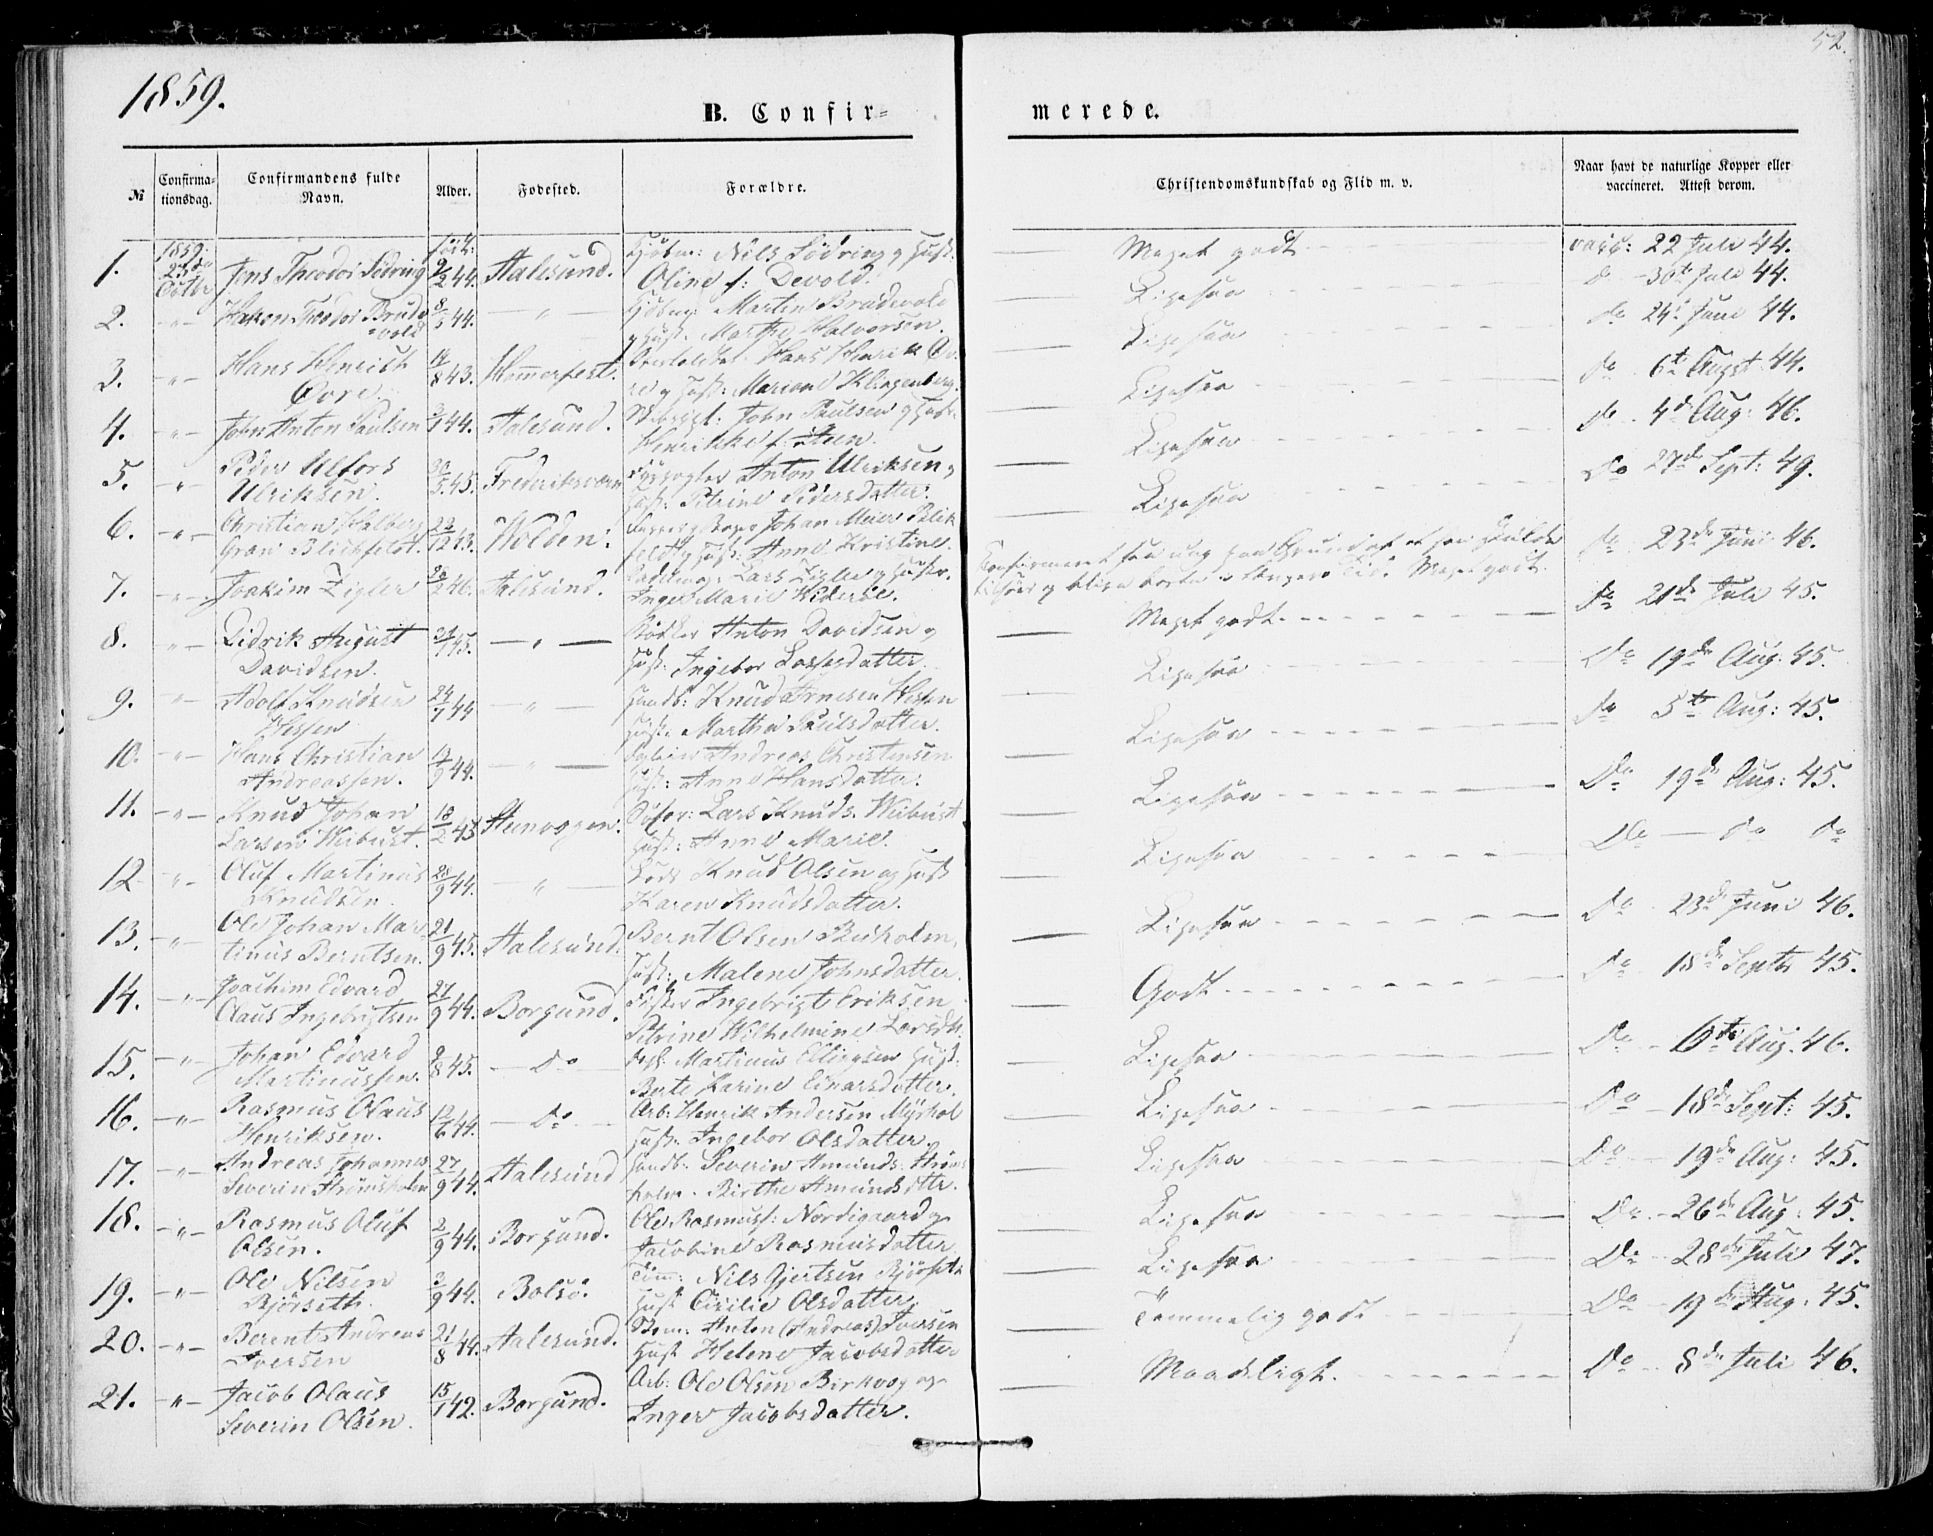 52.
1859.
B. Confir=
merede.
№
Confirma-
tionsdag.
Confirmandens fulde
Navn.
Alder.
Fødested.
Forældre.
Christendomskundskab og Flid m. v.
Naar havt de naturlige Kopper eller
vaccineret. Attest derom.
1. 1859 2den Octbr Jens Theodor Södring 9/2 44. Aalesund. Kjøbm: Nils Södring g Hust:
Oline f: Devold. Meget godt vacc: 22 Juli 44.
2. -"- Theodor Brude
=vold 8/5 44. -"- Kjøbm: Martin Brudevold
g Hust. Marthe Halvorsen. Ligesaa do 30te Juli 44.
3. -"- Hans Henrich
Qvre. 14/8 43. Hamerfest. Hans Henrik Qv-
re g Hust: Mariane Klingenberg. Ligesaa do 24de Juni 44.
4. -"- John Anton Paulsen 44. Aalesund. John Paulsen g Hustr.
Henrikke f: Ligesaa do 6te Augst 44.
5. " Peder Ulfers
Ulriksen. 30/5 45. Frederiksværn Anton Ulriksen g
Hust: Petrine Pedersdatter. Ligesaa do 4de Aug: 46.
6. -"- Christian Halberg
Gran Blichfeldt. 23/12 43. Volden: Johan Meier Blik
feldt g Hust: Anne Kristine. Ligesaa Do 27de Sept: 49.
7. -"- Joakim Zigler 46. Aalesund. Lars Zigler g Hustr.
Inger Marie Widerøe. Confirmeret saa ung paa Grund af at han skulde
tilsøes g blive borte i længere Tid. Meget godt. do 23de Juni 46.
8. -"- Didrik August
Davidsen. 45. -"- Bødker Anton Davidsen g
Hust: Ingebor Lassesdatter. Meget godt. do 21de Juli 45.
9. " Adolf Knudsen
Hessen 24/7 44 -"- Huusb: Knud Arnesen Hessen
Hust. Martha Poulsdatter. Ligesaa Do 19de Aug: 45.
10. " Hans Christian
Andreassen. 9 44. -"- Andreas Christensen
Hust: Anne Hansdatter. Ligesaa do 5te Aug: 45.
11. -"- Knud Johan
Larsen Weibust. 18/2 45 Steenvogen. Lars Knuds. Weibust
Hust: Anne Marie. Ligesaa Do 19de Aug: 45.
12 -"- Oluf Martinus
Knudsen. 28/9 44. -"- Lods Knud Olsen og Hust
Karen Knudsdatter. Ligesaa Do do do
13. -"- Ole Johan Mar-
tinus Berntsen. 21/9 45. Aalesund. Bernt Olsen Buholm,
Hust: Malene Johnsdatter. Ligesaa Do 23de Juni 46.
14. -"- Joachim Edvard
Claus Ingebrigtsen 27/9 44. Borgund. Fisker Ingebrigt Eriksen
Petrine Wilhelmine Larsdtr. Godt do 18de Septr 45.
15. -"- Johan Edvard
Martinussen. 9/8 45. Do Martinus Elligsen Hust.
Berte Karine Einarsdatter. Ligesaa Do 6te Aug. 46.
16. -"- Rasmus Olaus
Henriksen. 12/6 44. Do Arb: Henrik Andersen Myrhol
Hust. Ingebor Olsdatter. Ligesaa Do 18de Sept: 45.
17. -"- Andreas Johannes
Severin Strömsholm 27/9 44. Aalesund Huusb: Severin Amunds: Ströms
holm. Birthe Amundsdtter. Ligesaa Do 19de Aug: 45.
18. -"- Rasmus Oluf
Olsen. 2/9 44. Borgund. Ole Rasmuss: Nordigaard g
Jacobine Rasmusdatter Ligesaa Do 26de Aug: 45.
19. -"- Ole Nilsen
Bjørseth. 2/9 44. Bolsø. Töm: Nils Gjertsen Bjørseth
Hust Cicilie Olsdatter Ligesaa Do 28de Juli 47.
20. -"- Berent Andreas
Iversen 21/8 44. Aalesund. Anton (Andreas) Iversen
Hust Helene Jacobsdatter Temmelig godt Do 19de Aug: 45.
21. -"- Jacob Olaus
Severin Olsen. 15/1 42. Borgund. Arb: Ole Olsen Birkvog og
Inger Jacobsdatter. Maadeligt. Do 8de Juli 46.